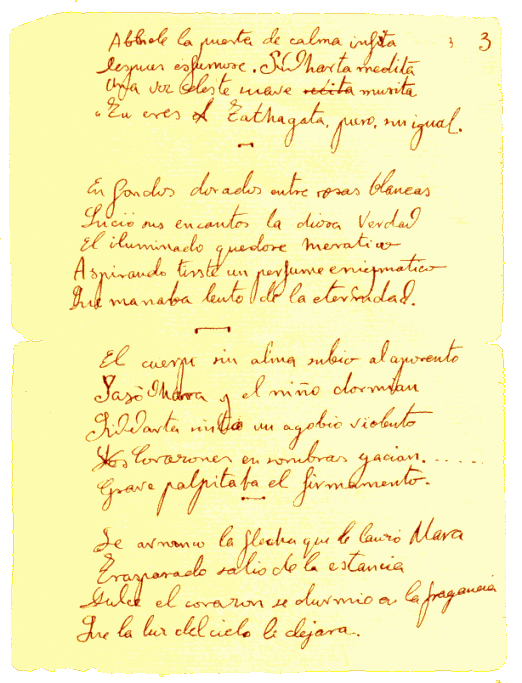 3 3
Abriole la puerta de calma infita
despues esfumose. Sidharta medita
Una voz celeste suave recita musita
"Tu eres el Tathagata, puro, sin igual.
En fondos dorados entre rosas blancas
Lució sus encantos la diosa Verdad
El iluminado quedose meratico
Aspirando triste un perfume enigmatico
Que manaba lento de la eternidad.
El cuerpo sin alma subio al aposento
Yasodhara y el niño dormian
Siddarta sintio un agobio violento
Los corazones en sombras yacian......
Grave palpitaba el firmamento.
Se arranco la flecha que le lanzo Mara
Traspasado salio de la estancia
Dulce el corazon se durmio a la fragancia
Que la luz del cielo le dejara.